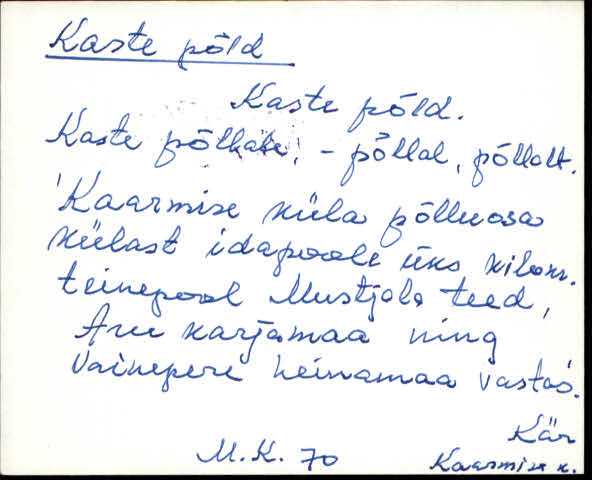 Kaste põld
Kaste põld.
Kaste põllale, - põllal, põllalt.
Kaarmise küla põlluosa
külast idapoole üks kilom.
teinepool Mustjala teed,
Aru karjamaa ning
Vainepere heinamaa vastas.
Kär
M.K. 70 Kaarmise k.